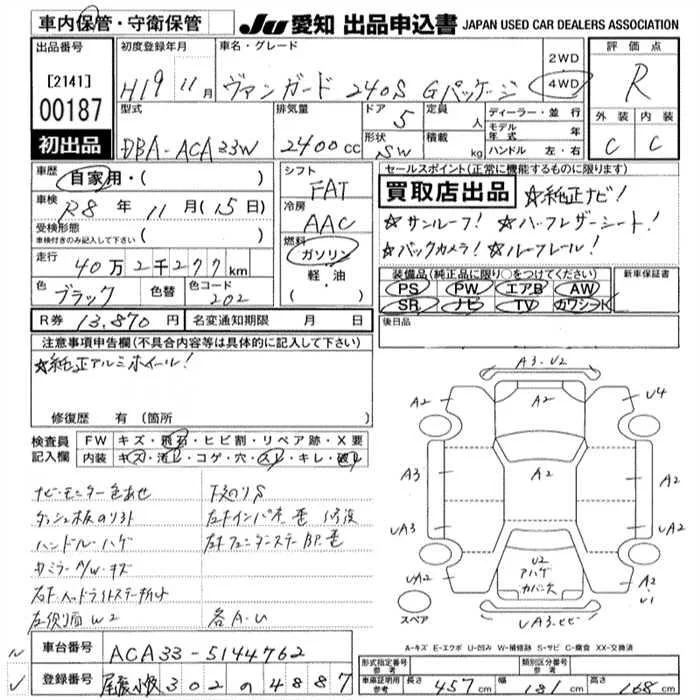 車内保管・守衛保管
JU 愛知 出品申込書 JAPAN USED CAR DEALERS ASSOCIATION
出品番号 [2141] 00187 初出品
初度登録年月 H19 11月
車名・グレード ヴァンガード 240S Gパッケージ
2WD 4WD
評価点 R
外装 内装
C C
型式 DBA-ACA33W
排気量 2400cc
ドア 5
形状 SW
定員 人
積載 kg
ディーラー・並行
モデル年式 年
ハンドル 左・右
車歴 自家用・( )
車検 R8年 11月(15日)
受検形態 車検付きのみ記入して下さい ( )
走行 40万2千277km
色 ブラック 色替 色コード 202
シフト FAT
冷房 AAC
燃料 ガソリン 軽・油 ( )
セールスポイント(正常に機能するものに限ります)
買取店出品 ☆純正ナビ!
☆サンルーフ! ☆ハーフレザーシート!
☆バックカメラ! ☆ルーフレール!
装備品(純正品に限り○をつけてください)
PS PW エアB AW
SR ナビ TV カワシート
新車保証書
後日品
R券 13,870円 名変通知期限 月 日
注意事項申告欄(不具合内容等は具体的に記入して下さい)
☆純正アルミホイール!
修復歴 有(箇所
検査員記入欄
FW キズ・飛石・ヒビ割・リペア跡・X要
内装 キズ・汚レ・コゲ・穴・スレ・キレ・破レ
ナビモニター色あせ
ダッシュ板のソリ
ハンドルハゲ
下廻りS
各A・U
A3・U2
A2 A2 U4
A3 A2 A2
UA3 UA2
UA2 U2 アハゲ A2 U1
UA3・ヒビ
スペア
A-キズ E-エクボ U-凹み W-補修跡 S-サビ C-腐食 XX-交換済
車台番号 ACA33-5144762
登録番号 302 の 4887
形式指定番号 参考
類別区分番号 参考
車庫証明用 参考 長さ 457cm 幅 181cm 高さ 168cm